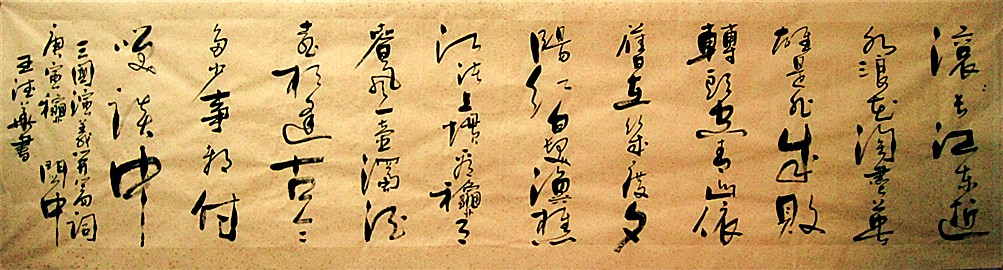 滚长江东逝
水浪花淘盡英
雄是非成敗
轉頭空青山依
舊在幾度夕
陽紅白髮漁樵
江渚上慣看龝月
春風一壺濁酒
喜相逢古今
多少事都付
笑談中
三國演義開篇詞
庚寅龝 閬中
王 書